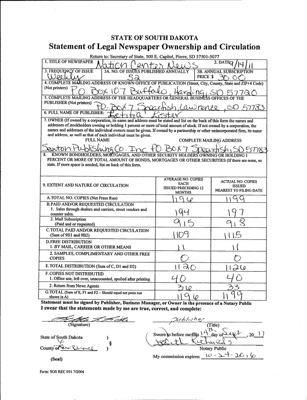 STATE OF SOUTH DAKOTA
Statement of Legal Newspaper Ownership and Circulation
Return to: Secretary of State, 500 E. Capitol, Pierre, SD 57501-5077
1. TITLE OF NEWSPAPER Nation Center News 2. DATE 9/14/11
3. FREQUENCY OF ISSUE Weekly 3A. NO. OF ISSUES PUBLISHED ANNUALLY 52 3B. ANNUAL SUBSCRIPTION PRICE $ 30.00
4. COMPLETE MAILING ADDRESS OF KNOWN OFFICE OF PUBLICATION (Street, City, County, State and ZIP+4 Code)
(Not printers) P.O. Box 107 Buffalo, Harding, SD 57720
5. COMPLETE MAILING ADDRESS OF THE HEADQUARTERS OF GENERAL BUSINESS OFFICES OF THE
PUBLISHER (Not printers) P.O. Box 7 Spearfish, Lawrence, SD 57783
6. FULL NAME OF PUBLISHER: Letitia Lister
7. OWNER (If owned by a corporation, its name and address must be stated and list on the back of this form the names and
addresses of stockholders owning or holding 1 percent or more of total amount of stock. If not owned by a corporation, the
names and addresses of the individual owners must be given. If owned by a partnership or other unincorporated firm, its name
and address, as well as that of each individual must be given.
FULL NAME COMPLETE MAILING ADDRESS
Seaton Publishing Co. Inc. PO Box 7 Spearfish, SD 57783
8. KNOWN BONDHOLDERS, MORTGAGES, AND OTHER SECURITY HOLDERS OWNING OR HOLDING 1
PERCENT OR MORE TOTAL AMOUNT OF BONDS, MORTGAGES OR OTHER SECURITIES (If there are none, so
state. If more space is needed, list on back of this form.
9. EXTENT AND NATURE OF CIRCULATION AVERAGE NO. COPIES EACH ISSUED PRECEDING 12 MONTHS ACTUAL NO. COPIES ISSUED NEAREST TO FILING DATE
A. TOTAL NO. COPIES (Net Press Run) 1196 1199
B. PAID AND/OR REQUESTED CIRCULATION
1. Sales through dealers and carriers, street vendors and counter sales. 194 197
2. Mail Subscription (Paid and or requested) 915 918
C. TOTAL PAID AND/OR REQUESTED CIRCULATION (Sum of 9B1 and 9B2) 1109 1115
D. FREE DISTRIBUTION
1. BY MAIL, CARRIER OR OTHER MEANS 11 11
2. SAMPLES, COMPLIMENTARY AND OTHER FREE COPIES 0 0
E. TOTAL DISTRIBUTION (Sum of C, D1 and D2) 1120 1126
F. COPIES NOT DISTRIBUTED
1. Office use, left over, unaccounted, spoiled after printing 40 40
2. Return from News Agents 36 33
G. TOTAL (Sum of E, F1 and F2 - Should equal net press run shown in A) 1196 1199
Statement must be signed by Publisher, Business Manager, or Owner in the presence of a Notary Public
I swear that the statements made by me are true, correct, and complete:
publisher
(Signature) (Title)
State of South Dakota )
County of Lawrence )
Sworn to before me this 14th day of Sept, 2011
Notary Public
(Seal) My commission expires: 10-24-2016
Form: SOS REC 051 7/2004